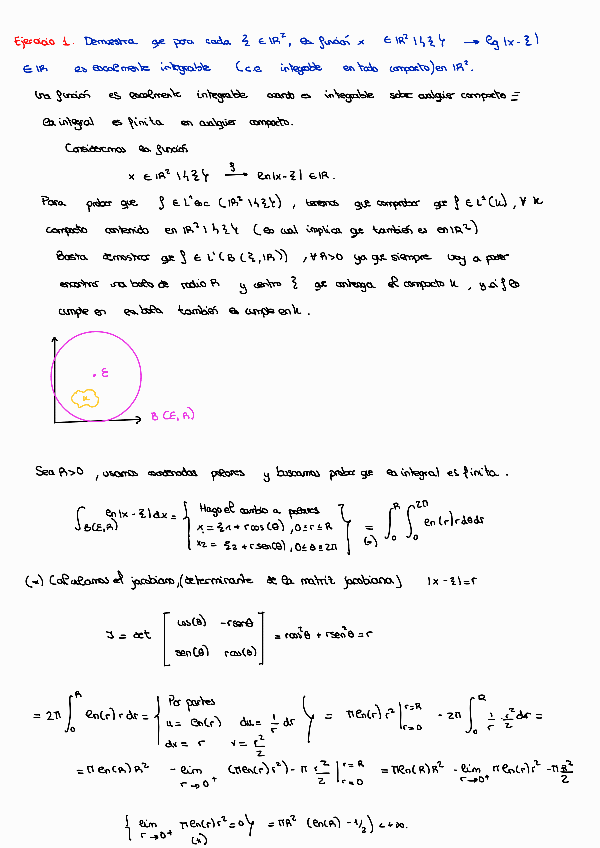 Ejercicio 1. Demuestra que para cada ξ ∈ ℝ², la función x ∈ ℝ² \ {ξ} → log |x-ξ|
∈ ℝ es localmente integrable (i.e. integrable en todo compacto) en ℝ².
Una función es localmente integrable cuando es integrable sobre cualquier compacto ≡
la integral es finita en cualquier compacto.
Consideremos la función
x ∈ ℝ² \ {ξ} →^f ln|x-ξ| ∈ ℝ.
Para probar que f ∈ L¹loc (ℝ² \ {ξ}), tenemos que comprobar que f ∈ L¹(K), ∀ K
compacto contenido en ℝ² \ {ξ} (lo cual implica que también es en ℝ²)
Basta demostrar que f ∈ L¹(B(ξ,R)), ∀R>0 ya que siempre voy a poder
encontrar una bola de radio R y centro ξ que contenga el compacto K, y si f lo
cumple en la bola también lo cumple en K.
ξ
K
B(ξ,R)
Sea R>0, usamos coordenadas polares y buscamos probar que la integral es finita.
∫_{B(ξ,R)} ln|x-ξ| dx = { Hago el cambio a polares
x₁ = ξ₁ + r cos(θ), 0≤r≤R
x₂ = ξ₂ + r sen(θ), 0≤θ≤2π } =_(*) ∫₀^R ∫₀^{2π} ln(r) r dθ dr
(*) Calculamos el jacobiano, (determinante de la matriz jacobiana) |x-ξ|=r
J = det [ cos(θ) -r senθ
sen(θ) r cos(θ) ] = r cos²θ + r sen²θ = r
= 2π ∫₀^R ln(r) r dr = { Por partes
u = ln(r) du = 1/r dr
dv = r v = r²/2 } = π ln(r) r² |_{r=0}^{r=R} - 2π ∫₀^R 1/r r²/2 dr =
= π ln(R) R² - lim_{r→0⁺} (π ln(r) r²) - π r²/2 |_{r=0}^{r=R} = π ln(R) R² - lim_{r→0⁺} π ln(r) r² - π R²/2
{ lim_{r→0⁺} π ln(r) r² = 0 } =_(*) πR² (ln(R) - 1/2) < +∞.